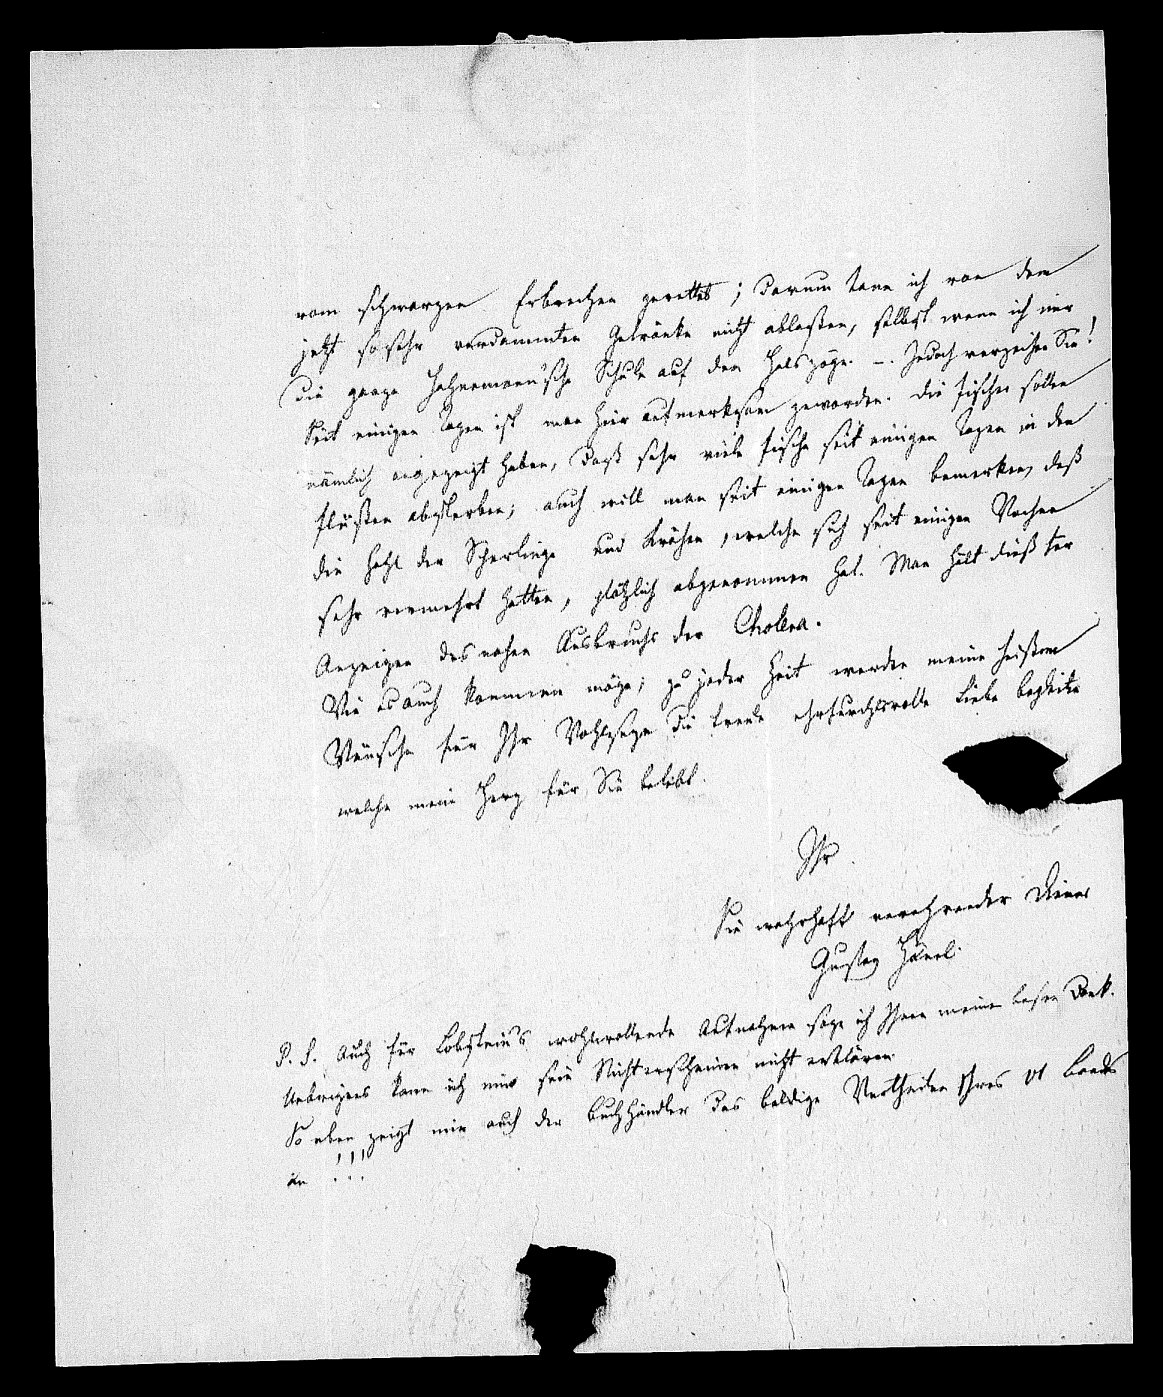 vom schwarzen Erbrechen gerettet; darum kann ich von dem
jetzt so sehr verdammten Getränke nicht ablaßen, selbst wenn ich mir
die ganze Hahnemann'sche Schule auf den Hals zöge. –. Jedoch verzeihen Sie!
Seit einigen Tagen ist man hier aufmerksam geworden. Die Fischer sollen
nämlich angezeigt haben, daß sehr viele Fische seit einigen Tagen in den
Flüßen absterben; auch will man seit einigen Tagen bemerken, daß
die Zahl der Sperlinge und Krähen, welche sich seit einigen Wochen
sehr vermehrt hatten, plötzlich abgenommen hat. Man hält dieß für
Anzeigen des nahen Ausbruchs der Cholera.
Wie es auch kommen möge; zu jeder Zeit werden meine heißen
Wünsche für Ihr Wohlseyn die treue ehrfurchtsvolle Liebe begleiten
welche mein Herz für Sie belebt.
Ihr
Sie wahrhaft verehrender Diener
Gustav Hänel.
P. S. Auch für Lobstein's wohlwollende Aufnahme sage ich Ihnen meinen besten Dank.
Uebrigens kann ich mir sein Nichterscheinen nicht erklären.
So eben zeigt mir auch der Buchhändler das baldige Vertheilen Ihres VI Bandes
an !!!